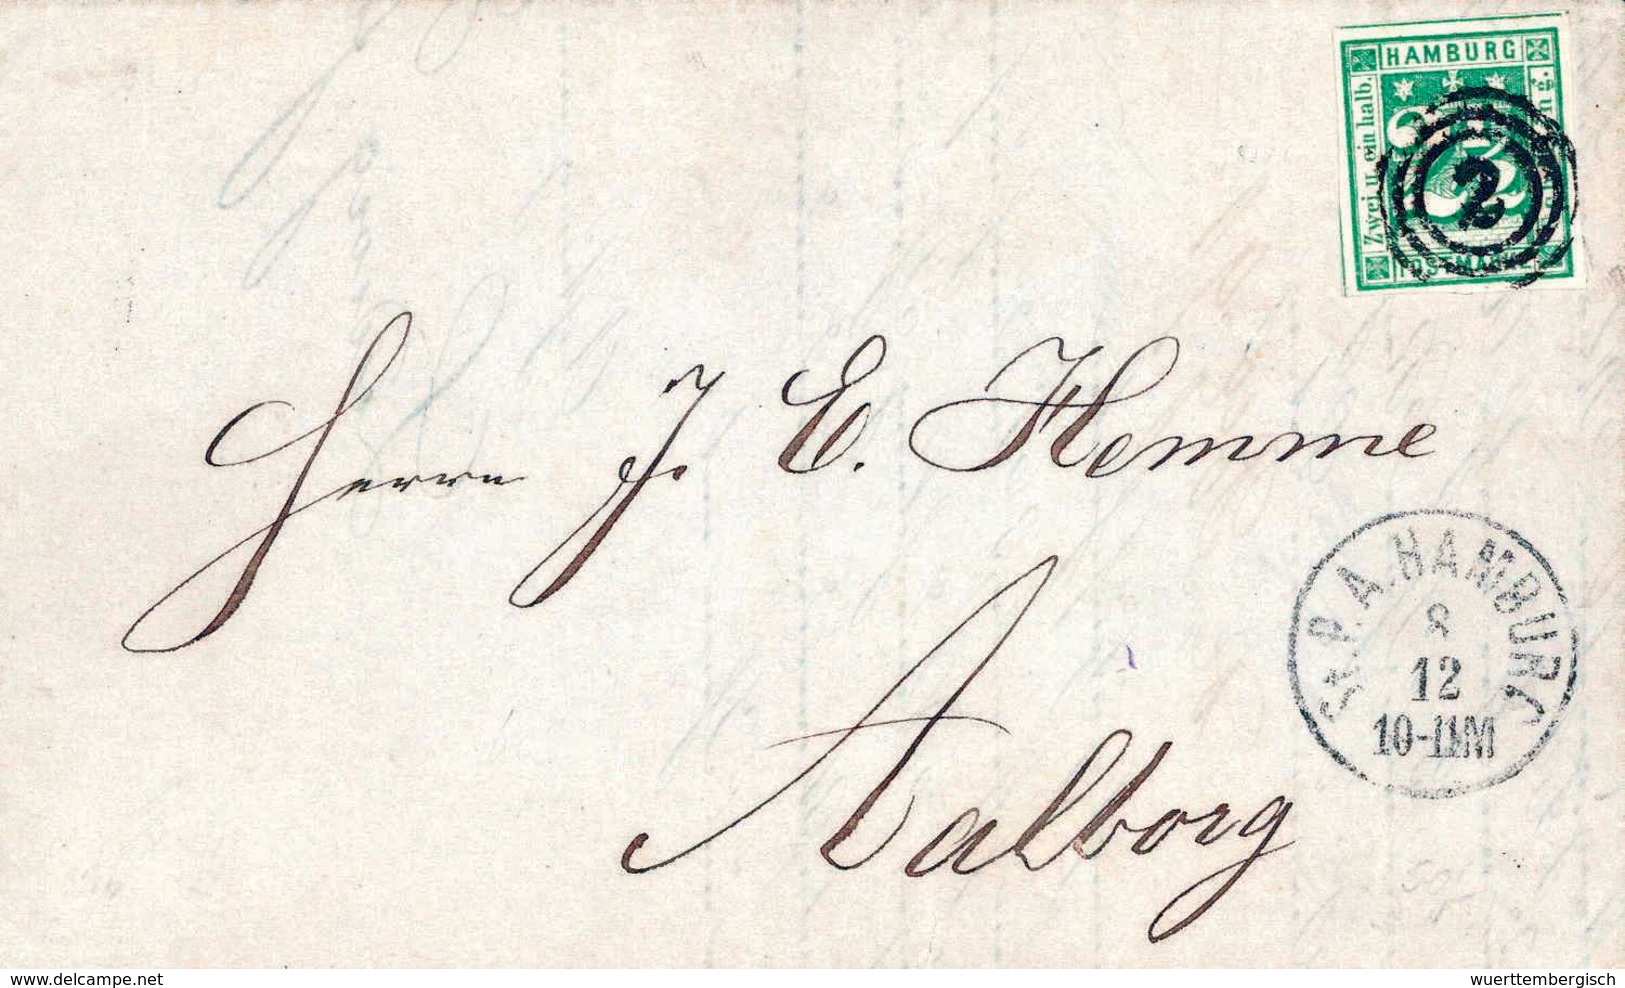 HAMBURG
Zwei u. ein halb.
POSTMARKE
2½
2
Herrn J. E. Hemme
Aalborg
St. P. A. HAMBURG
8
12
10-11M
delcampe.net
wuerttembergisch